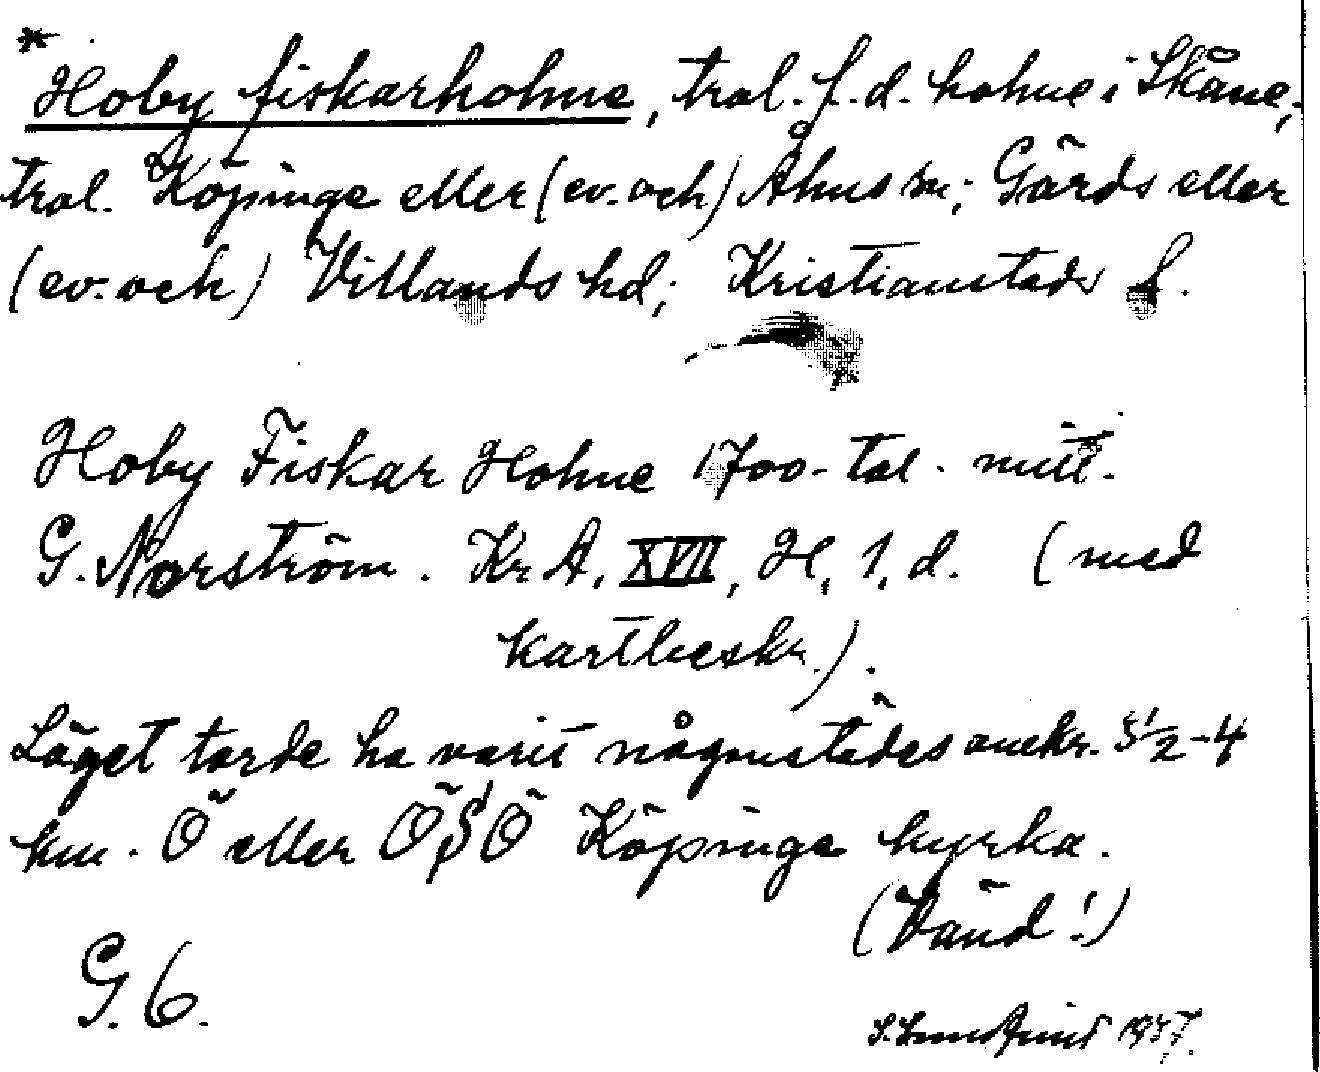 * Hoby fiskarholme, trol. f.d. holme i Skåne,
trol. Köpinge eller (ev. och) Åhus sn; Gärds eller
(ev. och) Villands hd; Kristianstads l.
Hoby Fiskar Holme 1700-tal. mitt.
G. Norström. Kr A, XVII, H, 1, d. (med
kartbeskr.).
Läget torde ha varit någonstädes omkr. 3 1/2-4
km. Ö eller ÖSÖ Köpinge kyrka.
(Vänd!)
G. 6.